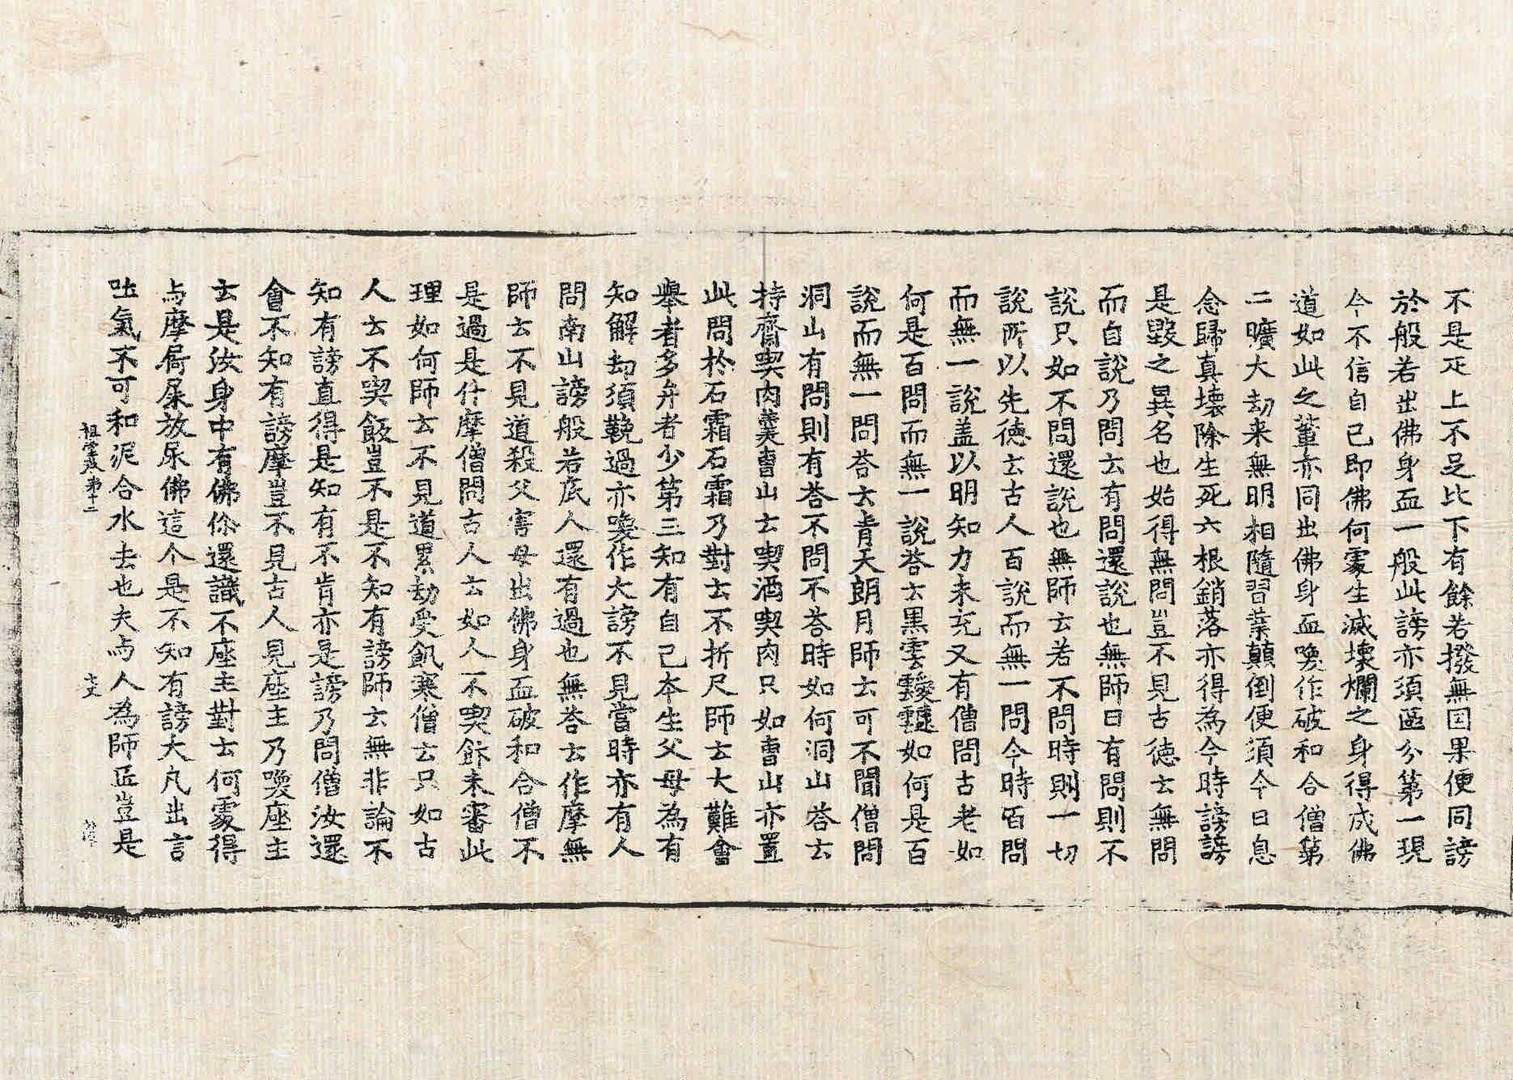 不是疋上不足比下有餘若撥無因果便同謗
於般若出佛身血一般此謗亦須區分第一現
今不信自己即佛何處生滅壞爛之身得成佛
道如此之輩亦同出佛身血喚作破和合僧第
二曠大劫来無明相隨習葉顛倒便須今日息
念歸真壊除生死六根銷落亦得為今時謗謗
是毀之異名也始得無問豈不見古德云無問
而自說乃問云有問還說也無師曰有問則不
說只如不問還說也無師云若不問時則一切
說所以先德云古人百說而無一問今時百問
而無一說盖以明知力未充又有僧問古老如
何是百問而無一說荅云黒雲靉靆如何是百
說而無一問荅云青天朗月師云可不聞僧問
洞山有問則有荅不問不荅時如何洞山荅云
持齋喫肉羹曹山云喫酒喫肉只如曹山亦置
此問於石霜石霜乃對云不折尺師云大難會
舉者多弁者少第三知有自己本生父母為有
知解却須鞔過亦喚作大謗不見當時亦有人
問南山謗般若底人還有過也無荅云作摩無
師云不見道殺父害母出佛身血破和合僧不
是過是什摩僧問古人云如人不喫飰未審此
理如何師云不見道累劫受飢寒僧云只如古
人云不喫飯豈不是不知有謗師云無非論不
知有謗直得是知有不肯亦是謗乃問僧汝還
會不知有謗摩豈不見古人見座主乃喚座主
云是汝身中有佛你還識不座主對云何處得
与摩屙屎放尿佛這个是不知有謗大凡出言
吐氣不可和泥合水去也夫与人為師匠豈是
祖堂集卷第十二